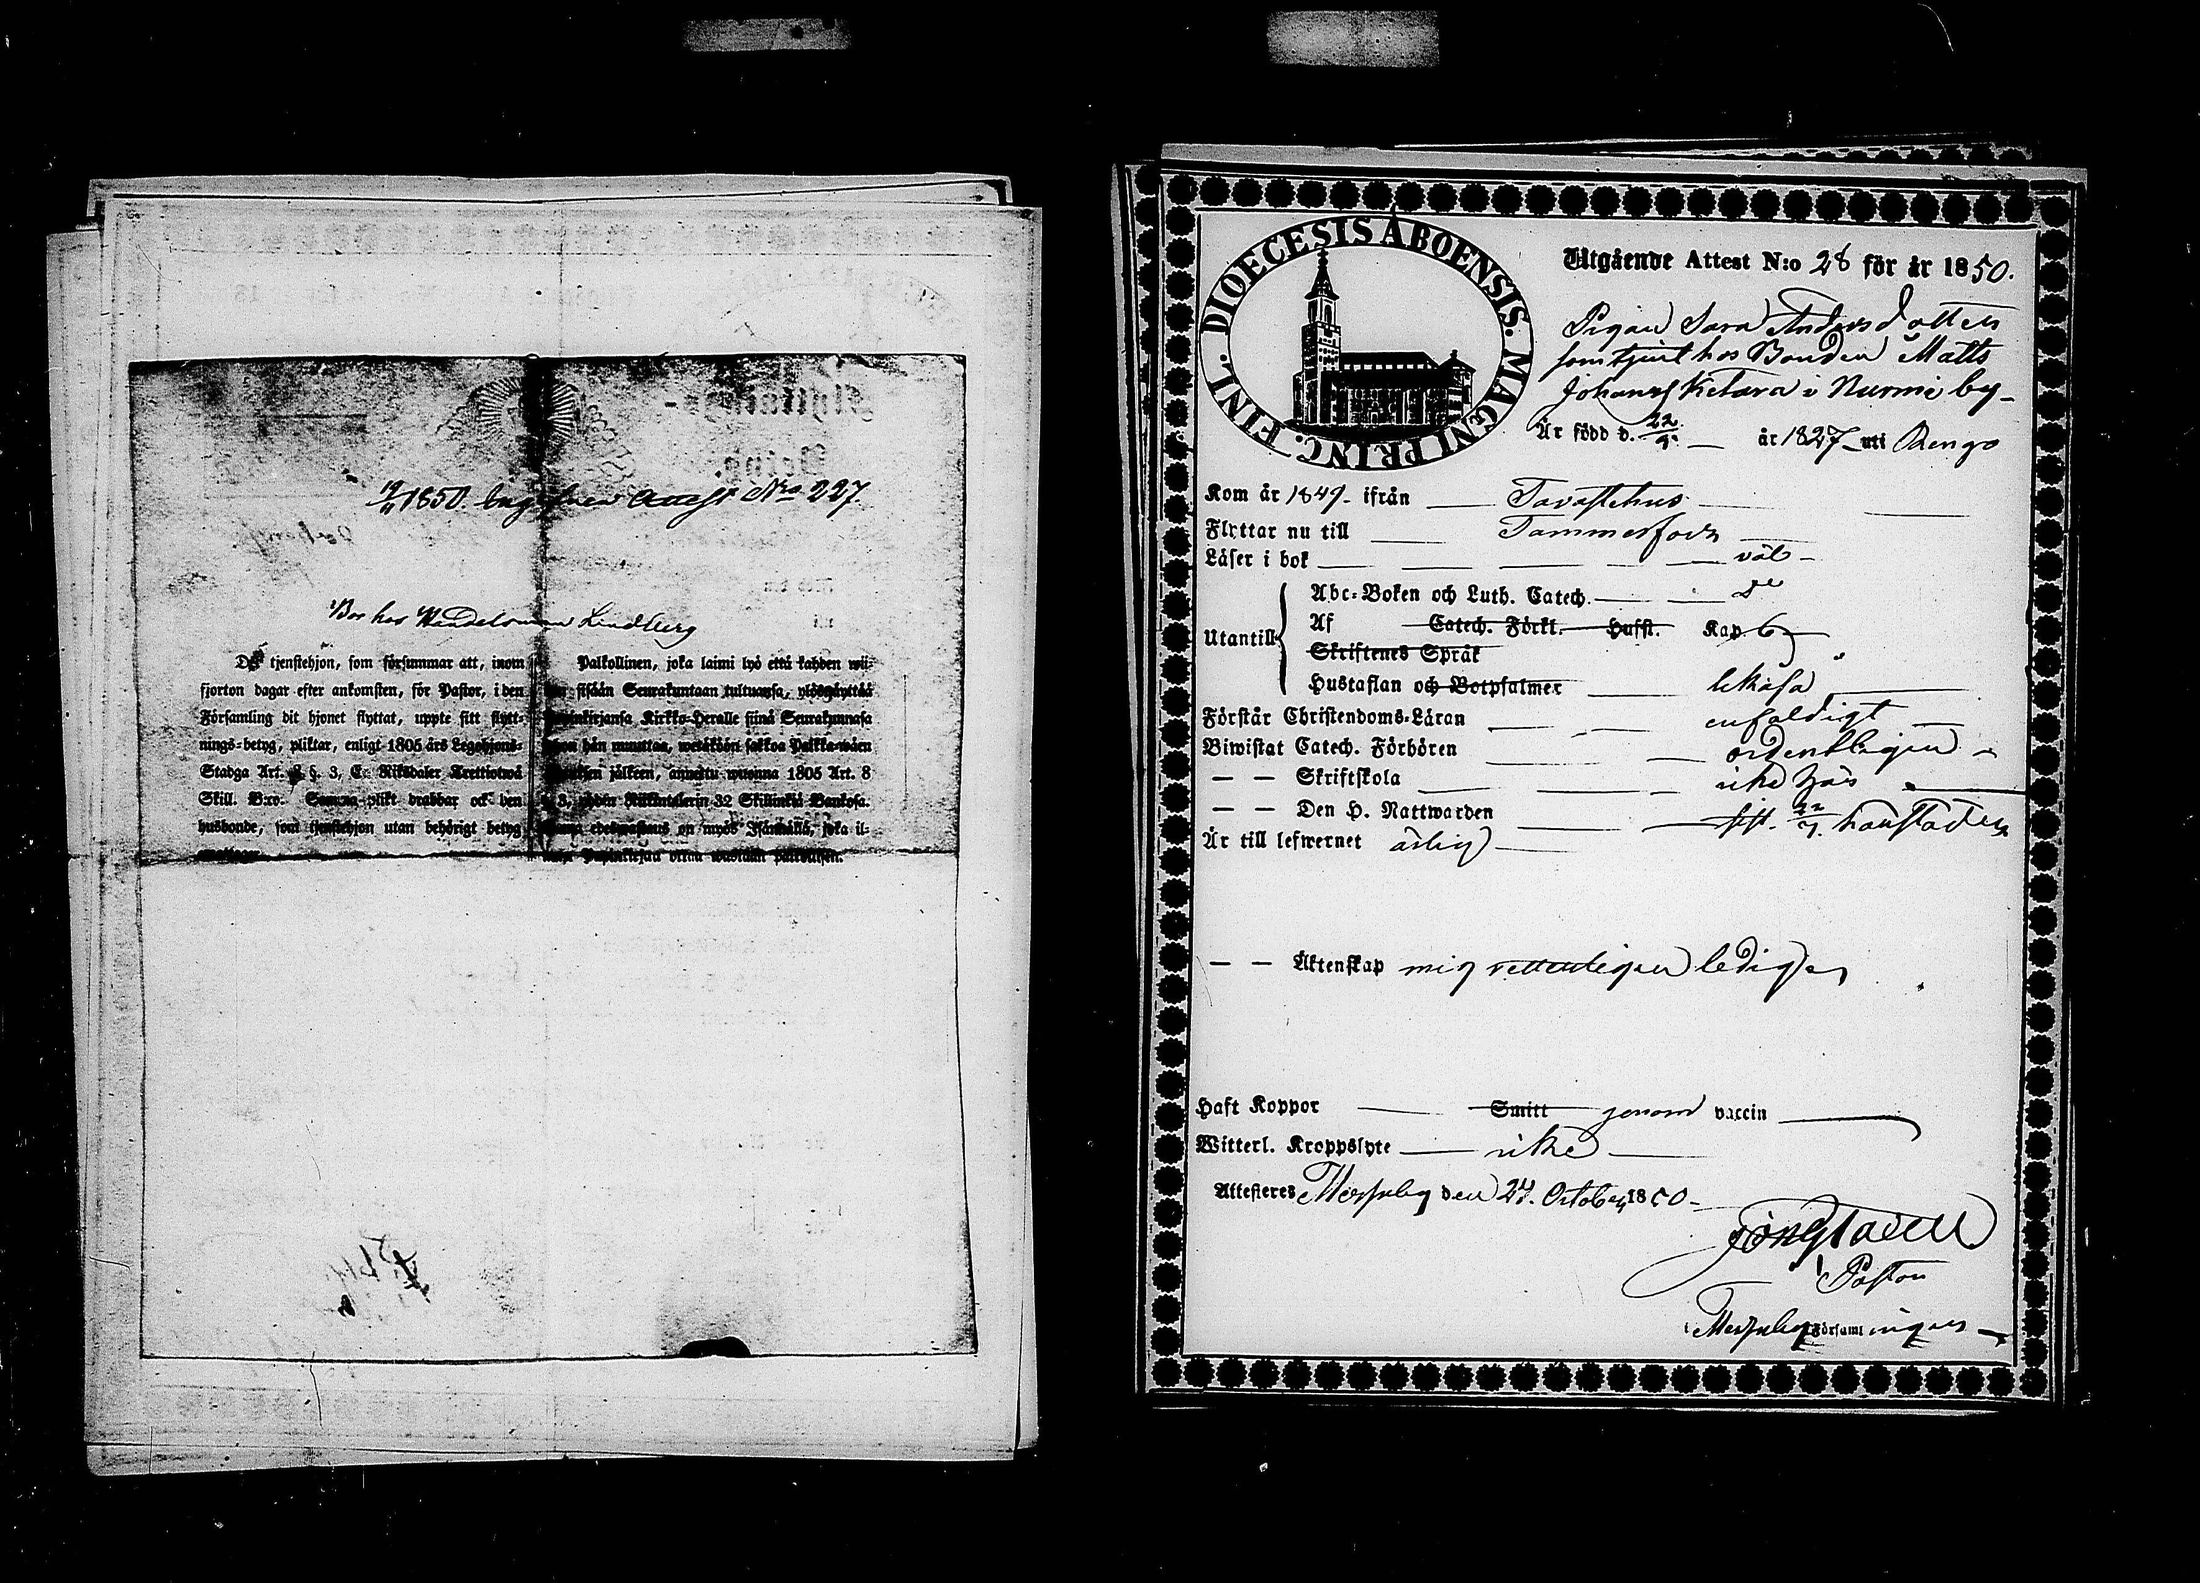 19/11 1850. Attest Nro 227.
Bor hos Handelsman Lindberg
Det tjenstehjon, som försummar att, inom
fjorton dagar efter ankomsten, för Pastor, i den
Församling dit hjonet flyttat, uppte sitt flytt-
nings-betyg, pliktar, enligt 1805 års Legohjons-
Stadga Art. 8 §. 3, En Riksdaler Trettiotwå
Skill. B:co. Samma plikt drabbar ock den
husbonde, som tjenstehjon utan behörigt betyg
emottager.
Palkollinen, joka laimi lyö että kahden wii-
Seurakuntaan tultuansa, ylösnäyttää
Kirkko-Heralle siinä Seurakunnasa
hän muuttaa, wetäköön sakkoa Palkka-wäen
jälkeen, annettu wuonna 1805 Art. 8
§. 3, yhden Riikintalerin 32 Skillinkiä Bankosa.
edeswastaus on myös Isännällä, joka il-
Papinkirjaa ottaa wastaan palkollisen.
DIOECESIS ÅBOENSIS. MAGNI PRINC. FINL.
Utgående Attest N:o 28 för år 1850.
Pigan Sara Andersdotter
som tjent hos Bonden Matts
Johansf Ketara i Nurmi by
Är född d. 22/9 år 1827 uti Rengo
Kom år 1849 ifrån Tavastehus
Flyttar nu till Tammerfors
Läser i bok väl
Utantill
Abc-Boken och Luth. Catech. d:o
Af Catech. Förkl. Hufst. Kap. 6
Skriftenes Språk
Hustaflan och Botpsalmer
Förstår Christendoms-Läran enfaldigt
Biwistat Catech. Förhören ordentligen
— — Skriftskola icke här
— — Den H. Nattwarden sist. 22/7
Är till lefwernet ärlig
— — Äktenskap mig vetterligen ledig
Haft Koppor Smitt genom vaccin
Witterl. Kroppslyte icke
Attesteras den 27. October 1850
Pastor
Församlingen